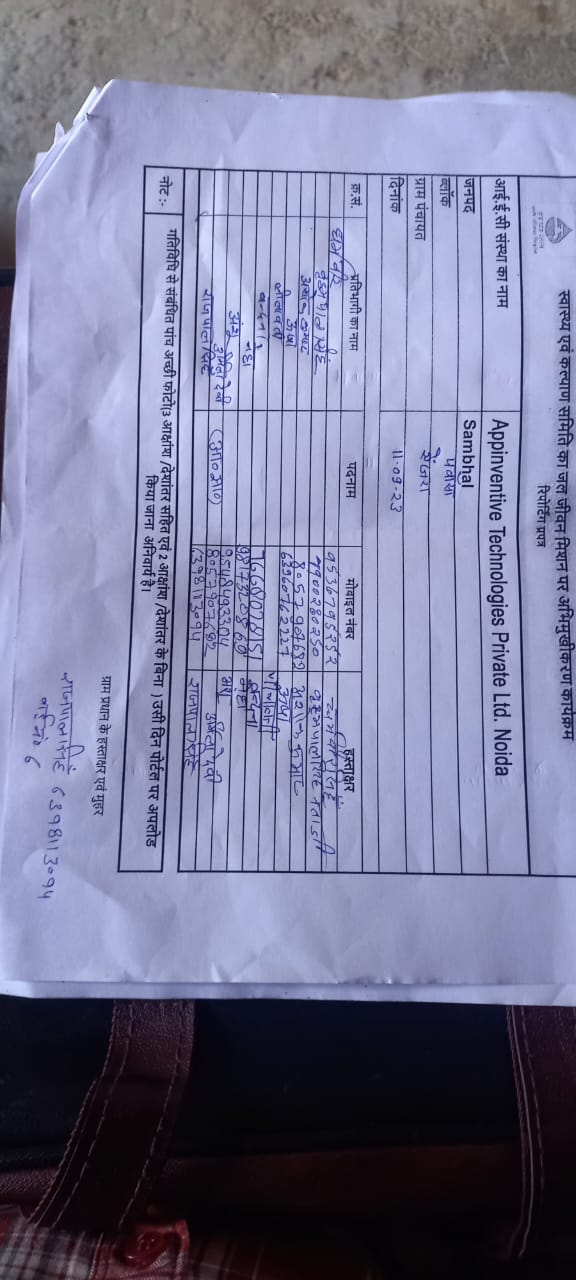 स्वास्थ्य एवं कल्याण समिति का जल जीवन मिशन पर अभिमुखीकरण कार्यक्रम
रिपोर्टिंग प्रपत्र
आई.ई.सी संस्था का नाम Appinventive Technologies Private Ltd. Noida
जनपद Sambhal
ब्लॉक पवासा
ग्राम पंचायत
दिनांक 11-09-23
क्र.सं. प्रतिभागी का नाम पदनाम मोबाइल नंबर हस्ताक्षर
धर्मवीर 9536795252
7900280250
8057907682
63960762227
लीलावती
वन्दना 7668026151
नेहा
अंशु अंशु
उर्मिला देवी (आ०आ०) 8057907682 उर्मिला देवी
राजपाल सिंह 6398113094 राजपाल सिंह
नोट :- गतिविधि से संबंधित पांच अच्छी फोटो(3 आक्षांण /देशांतर सहित एवं 2 आक्षांण /देशांतर के बिना ) उसी दिन पोर्टल पर अपलोड
किया जाना अनिवार्य है।
ग्राम प्रधान के हस्ताक्षर एवं मुहर
राजपाल सिंह 6398113094
वार्ड नं० 6